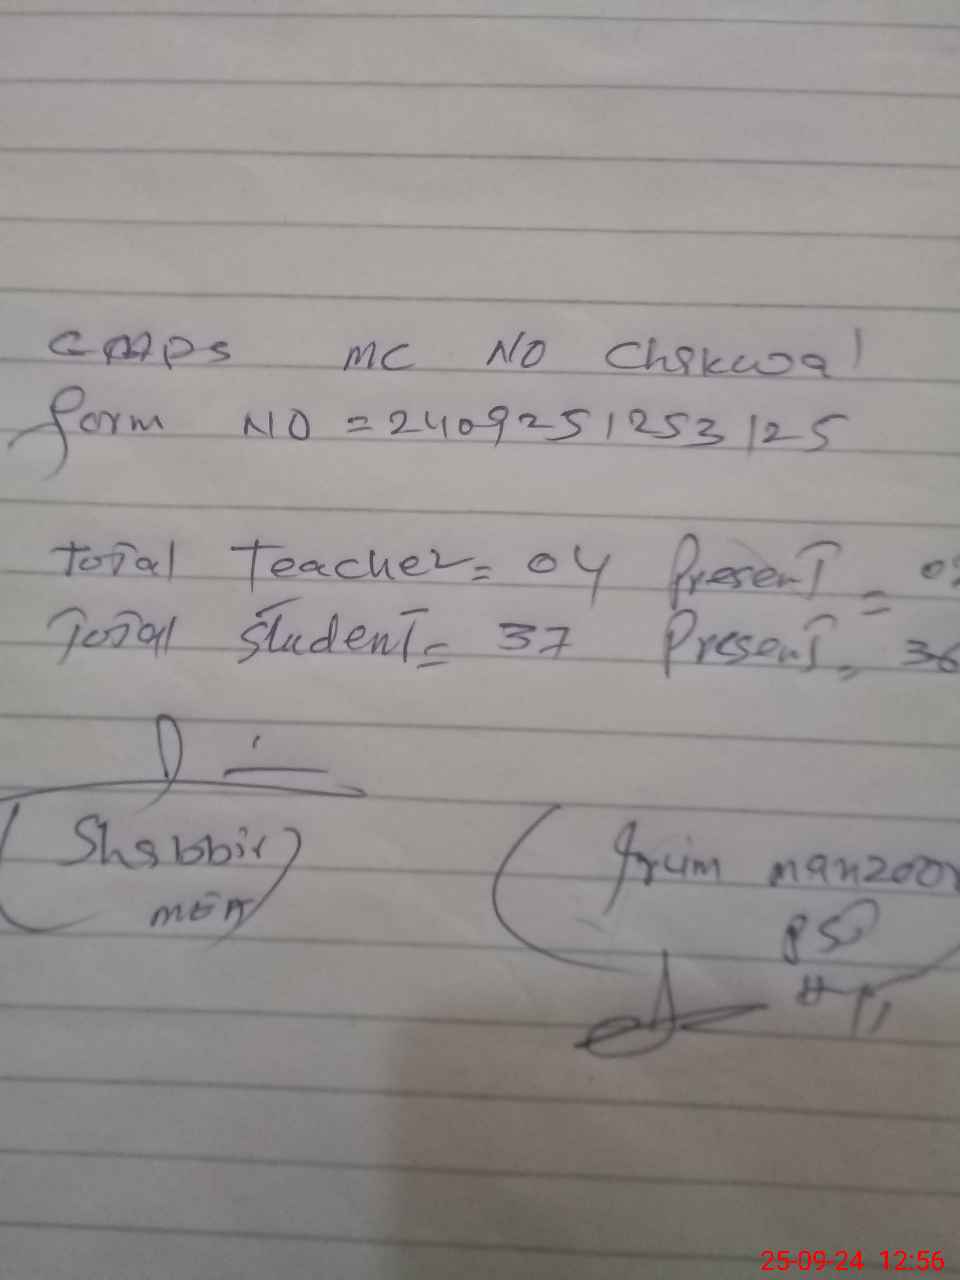 MC NO Chakwal
form NO = 2409251253125
Total Teacher = 04 Present =
Total Student = 37 Present = 36
Shabbir
MEA
Irum Manzoor
PST
25-09-24 12:56